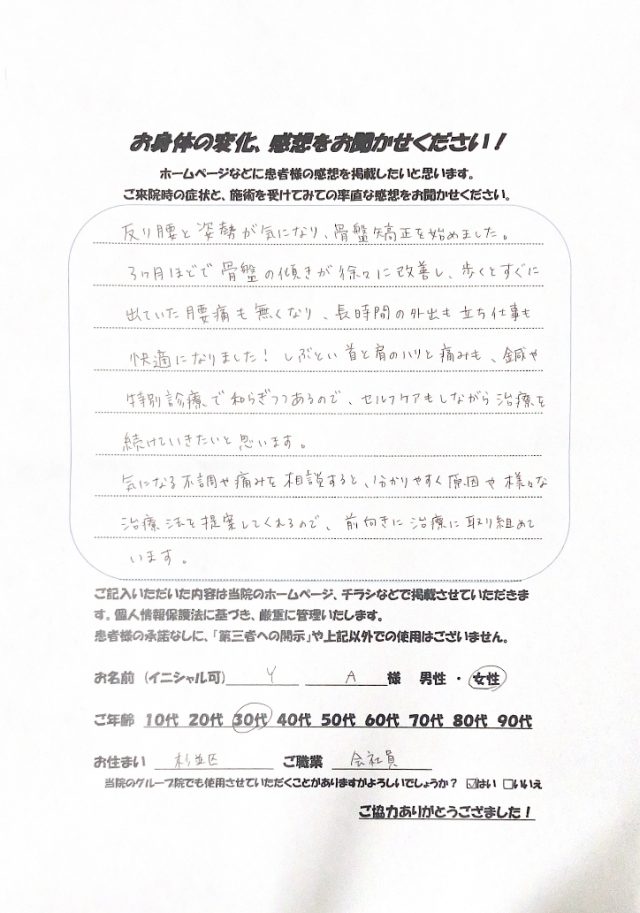 お身体の変化、感想をお聞かせください！
ホームページなどに患者様の感想を掲載したいと思います。
ご来院時の症状と、施術を受けてみての率直な感想をお聞かせください。
反り腰と姿勢が気になり、骨盤矯正を始めました。
3ヶ月ほどで骨盤の傾きが徐々に改善し、歩くとすぐに
出ていた腰痛も無くなり、長時間の外出も立ち仕事も
快適になりました！しぶとい首と肩のハリと痛みも、鍼や
特別診療で和らぎつつあるので、セルフケアもしながら治療を
続けていきたいと思います。
気になる不調や痛みを相談すると、分かりやすく原因や様々な
治療法を提案してくれるので、前向きに治療に取り組めて
います。
ご記入いただいた内容は当院のホームページ、チラシなどで掲載させていただきま
す。個人情報保護法に基づき、厳重に管理いたします。
患者様の承諾なしに、「第三者への開示」や上記以外での使用はございません。
お名前（イニシャル可） Y A 様 男性・女性
ご年齢 10代 20代 30代 40代 50代 60代 70代 80代 90代
お住まい 杉並区 ご職業 会社員
当院のグループ院でも使用させていただくことがありますがよろしいでしょうか？ ☑はい □いいえ
ご協力ありがとうござました！